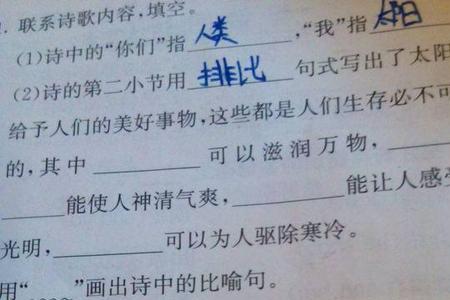 . 联系诗歌内容,填空。
(1)诗中的“你们”指 人类 ,“我”指 太阳
(2)诗的第二小节用 排比 句式写出了太阳
给予人们的美好事物,这些都是人们生存必不可
的,其中________可以滋润万物,____
____能使人神清气爽,________能让人感受
光明,________可以为人驱除寒冷。
用“____”画出诗中的比喻句。